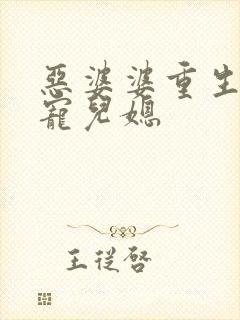 惡婆婆重生
寵兒媳
王從啓